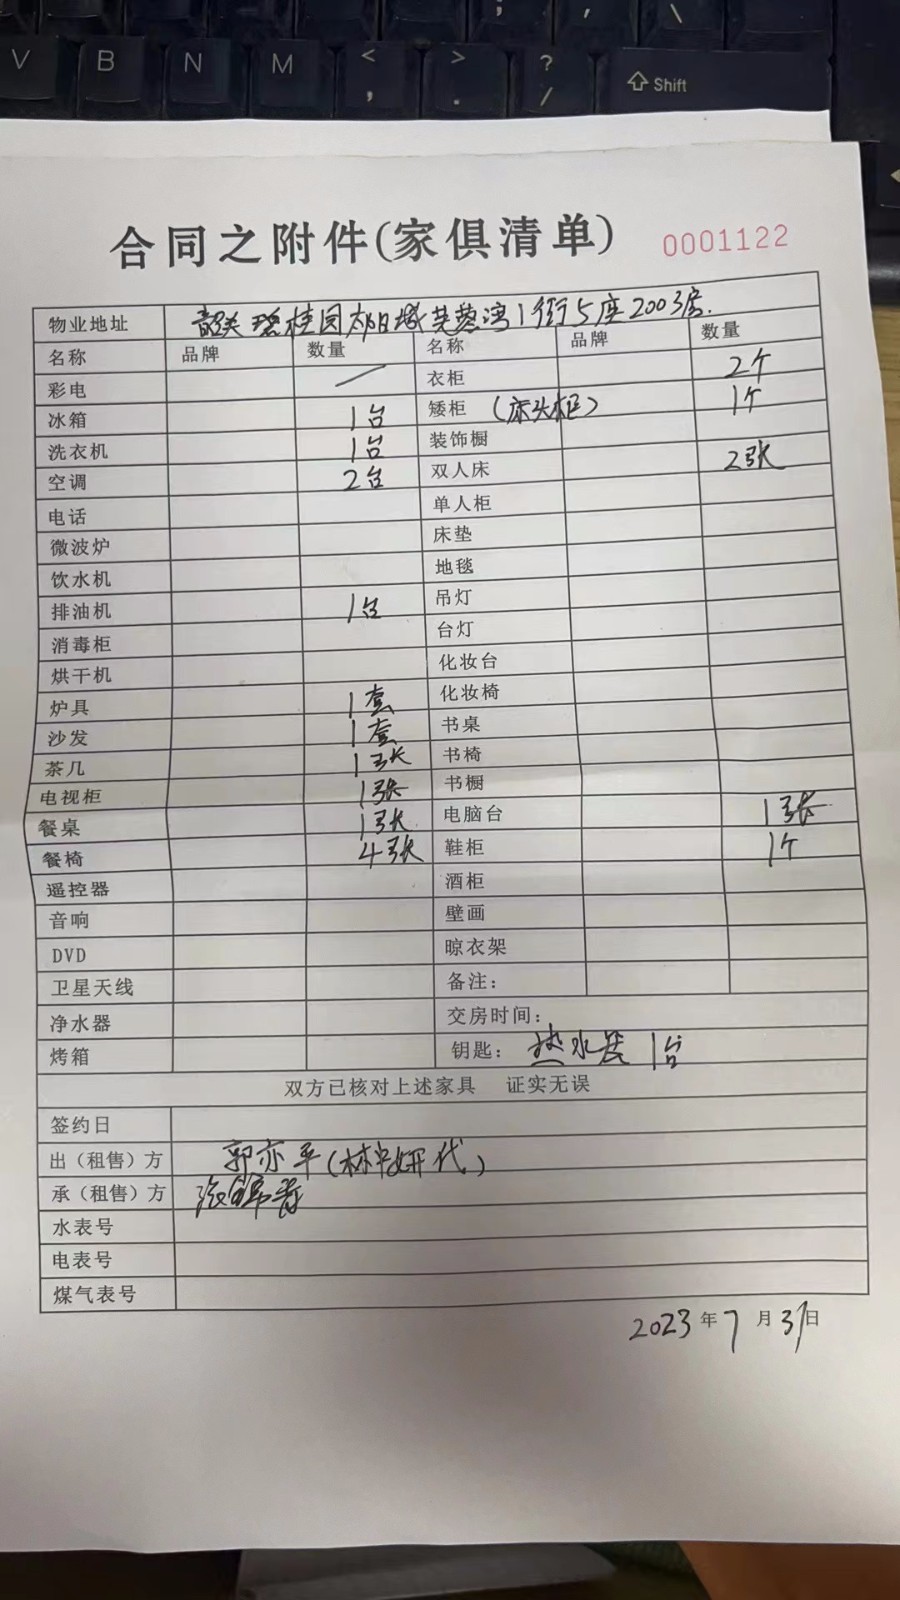 V B N M < , > . ? / Shift
合同之附件(家俱清单) 0001122
物业地址 韶关碧桂园太阳城芙蓉湾1街5座2003房.
名称 品牌 数量 名称 品牌 数量
彩电 / 衣柜 2个
冰箱 1台 矮柜 (床头柜) 1个
洗衣机 1台 装饰橱
空调 2台 双人床 2张
电话 单人柜
微波炉 床垫
饮水机 地毯
排油机 1台 吊灯
消毒柜 台灯
烘干机 化妆台
炉具 1套 化妆椅
沙发 1套 书桌
茶几 1张 书椅
电视柜 1张 书橱
餐桌 1张 电脑台 1张
餐椅 4张 鞋柜 1个
遥控器 酒柜
音响 壁画
DVD 晾衣架
卫星天线 备注:
净水器 交房时间:
烤箱 钥匙: 热水器 1台
双方已核对上述家具 证实无误
签约日
出(租售)方 郭亦平(林妍代)
承(租售)方
水表号
电表号
煤气表号
2023年7月31日